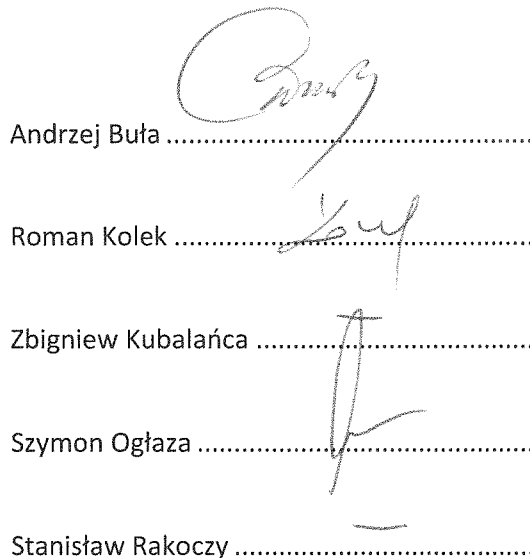 Andrzej Buła ........................................................
Roman Kolek ......................................................
Zbigniew Kubalańca ..........................................
Szymon Ogłaza ..................................................
Stanisław Rakoczy .............................................